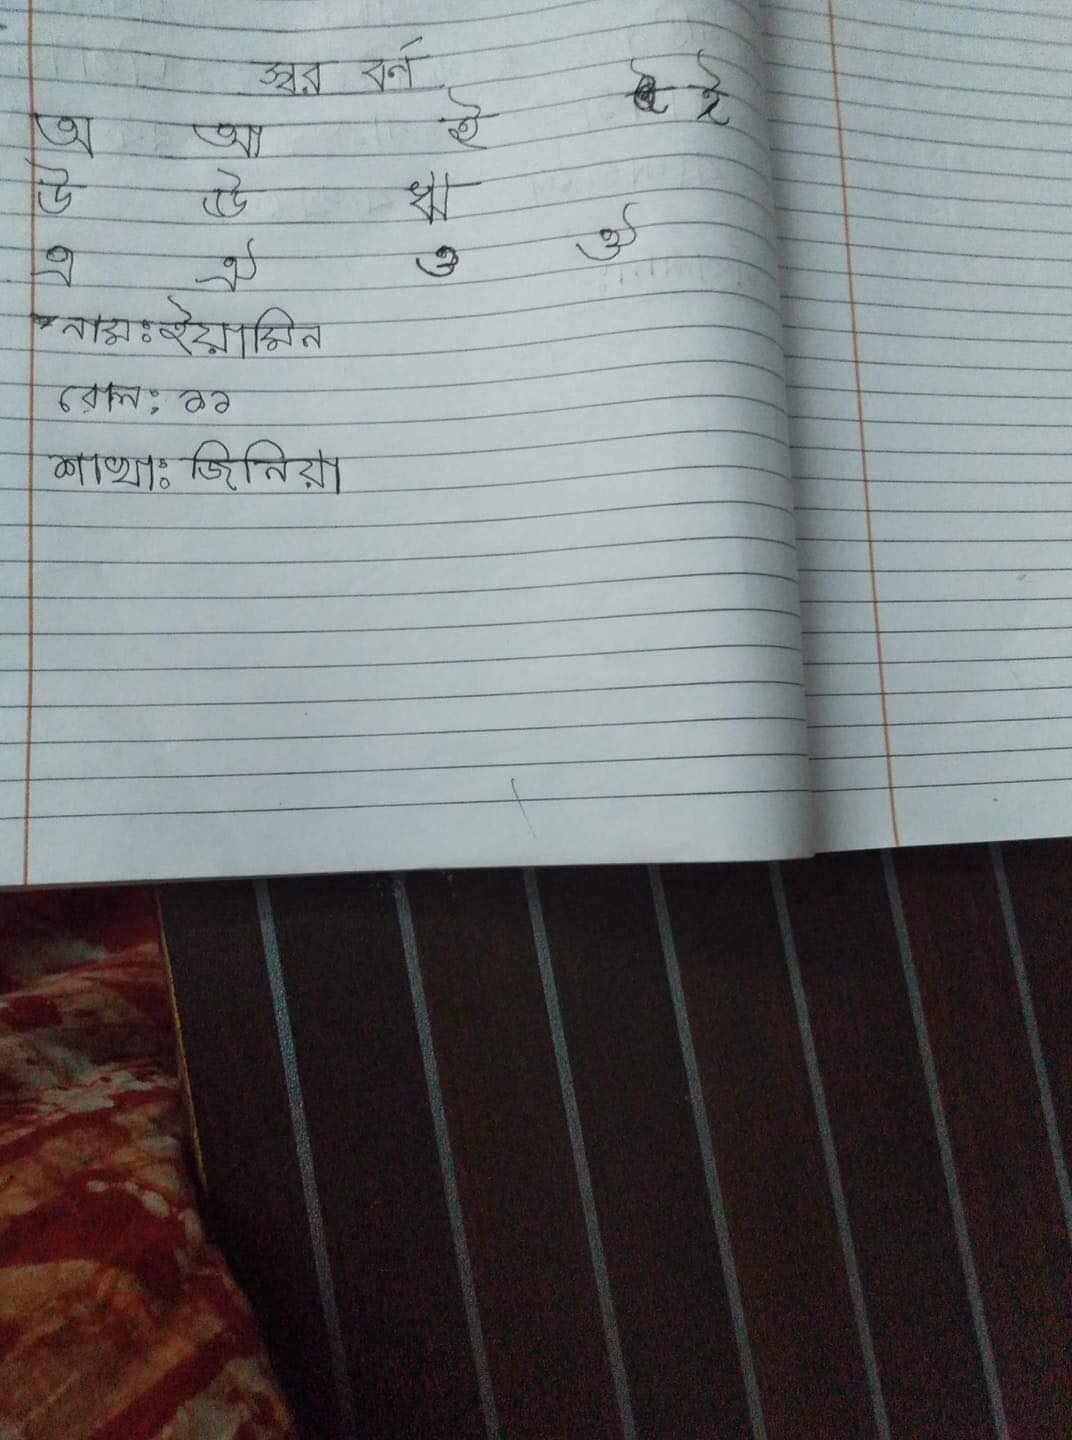 স্বর বর্ন
অ আ ই ই
উ ঊ ঋ
এ ঐ ও ঔ
নামঃ ইয়ামিন
রোল: ১১
শাখাঃ জিনিয়া